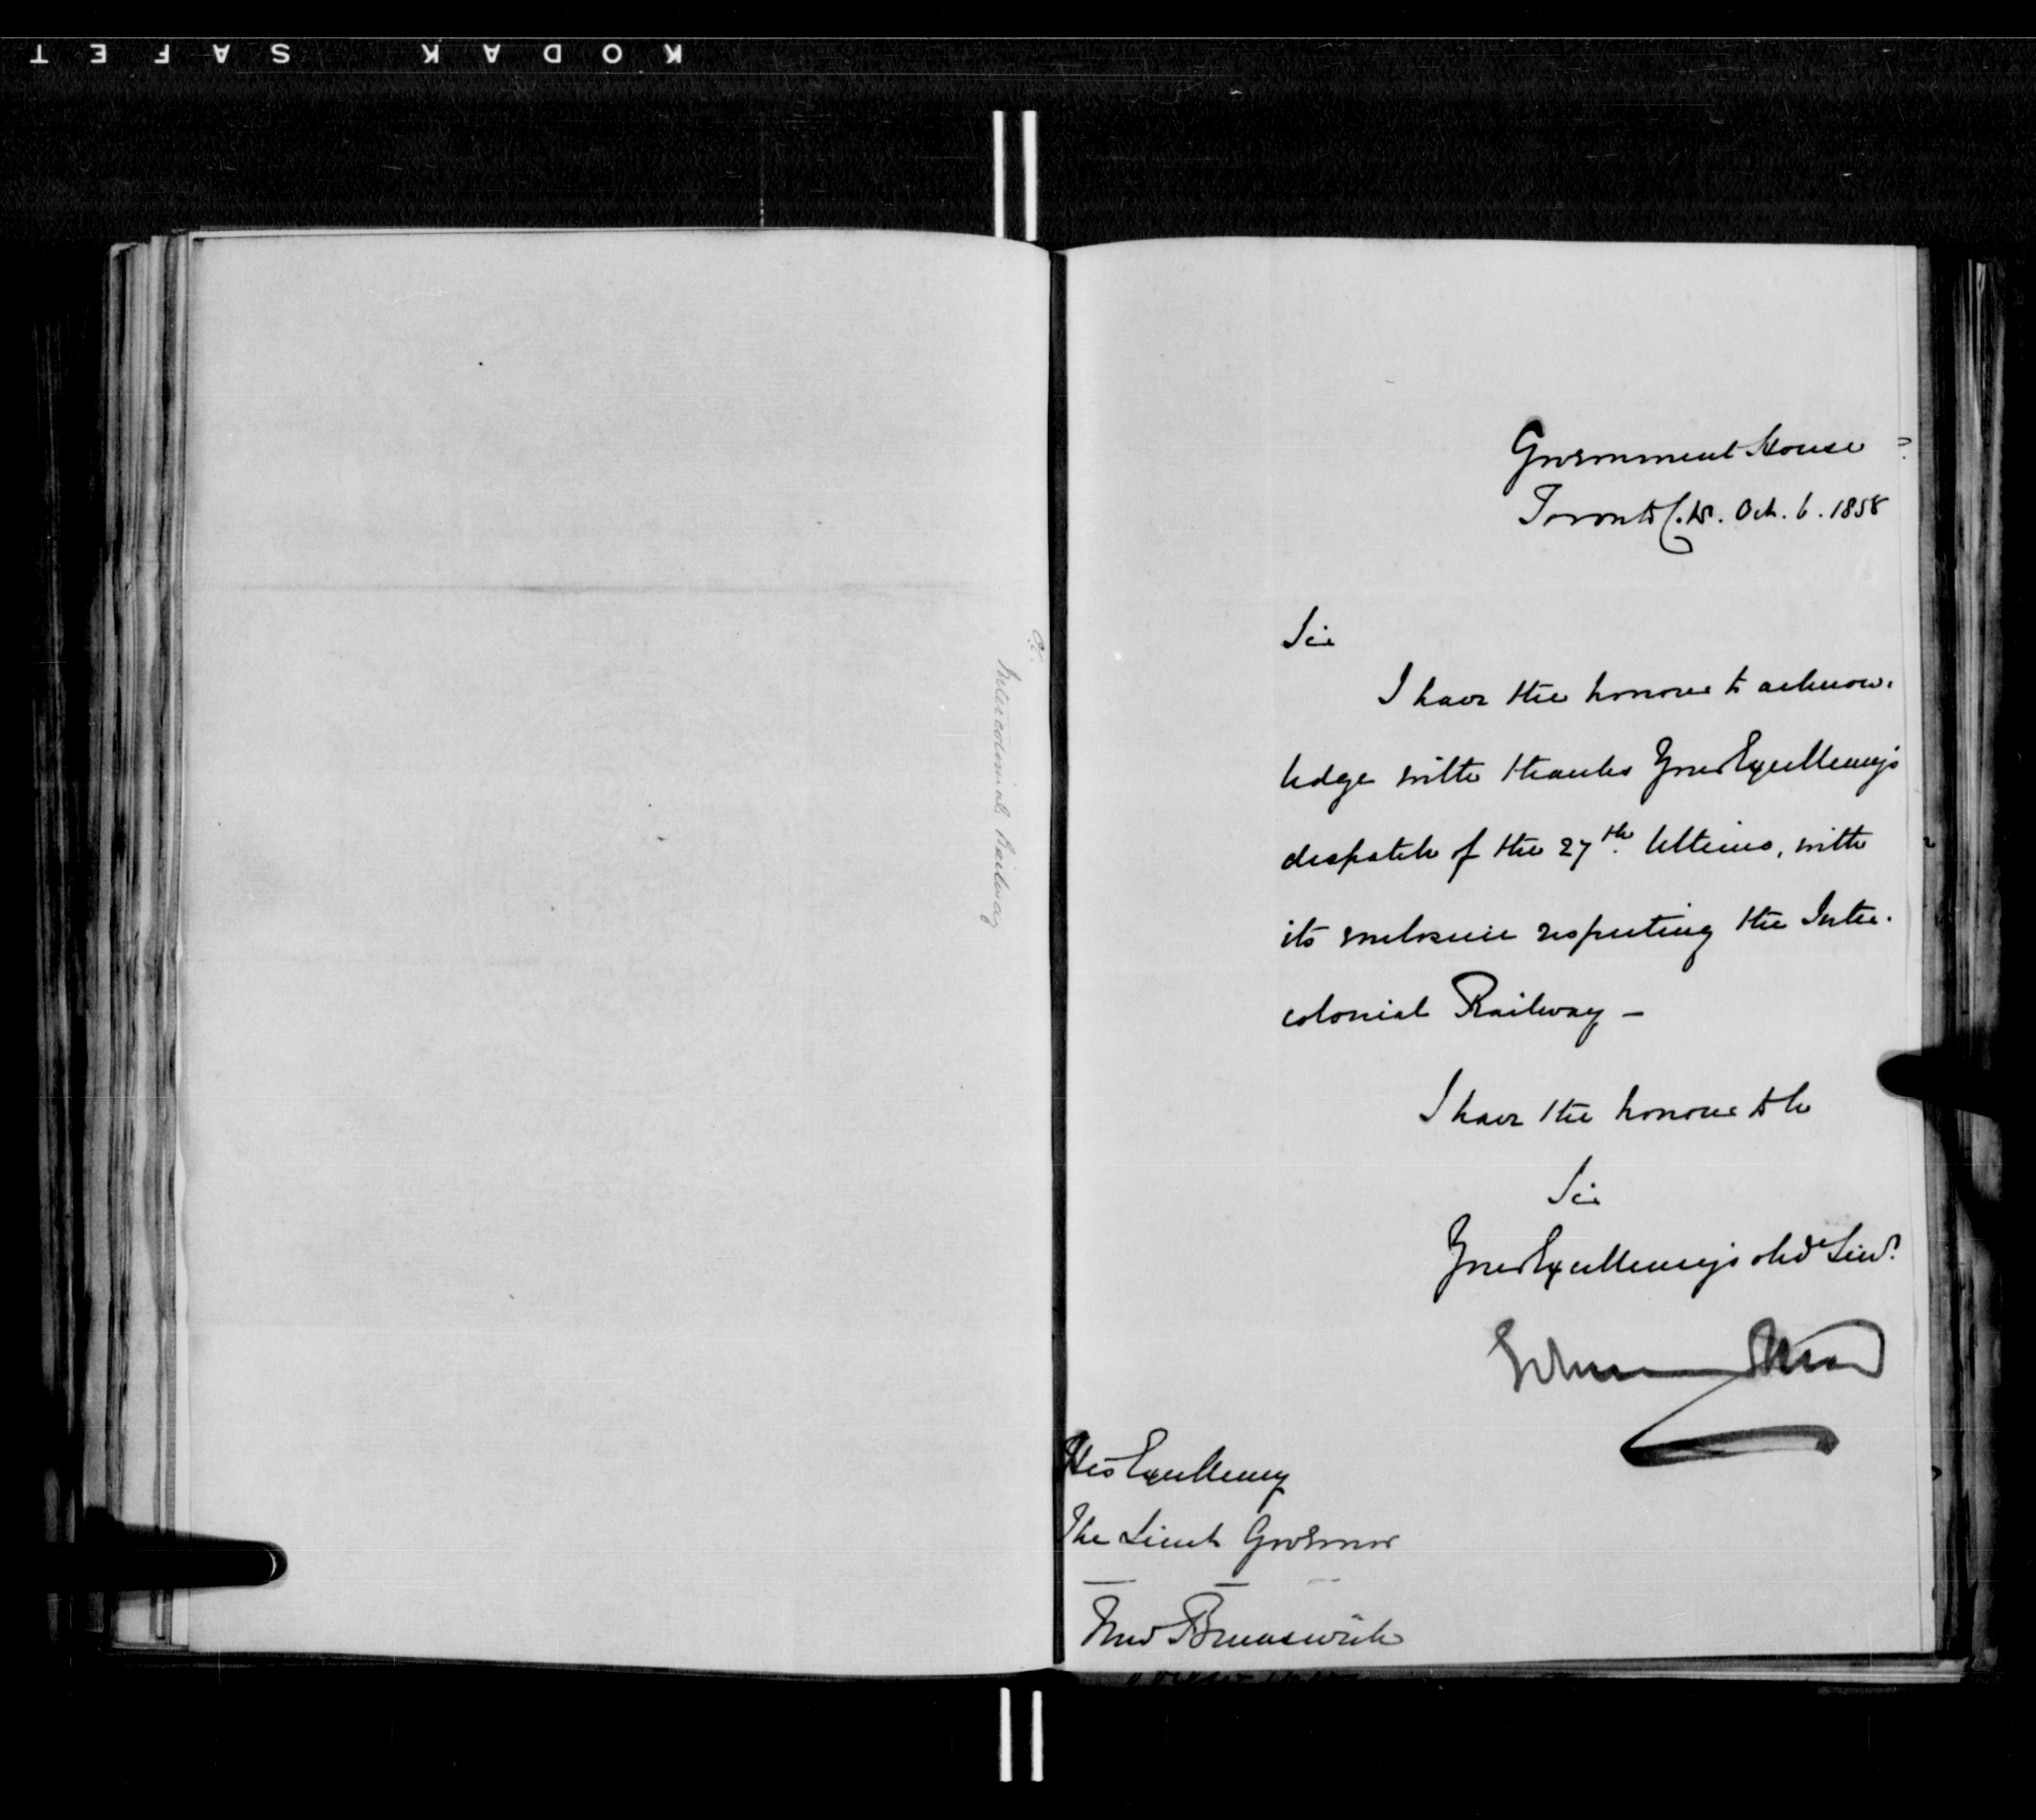 KODAK SAFET
Intercolonial Railway
Government House
Toronto C.W. Oct. 6. 1858
Sir
I have the honour to acknow-
ledge with thanks Your Excellency's
despatch of the 27th. Ultimo, with
its enclosure respecting the Inter-
colonial Railway –
I have the honour to be
Sir
Your Excellency's obdt Servt.
Edmund Head
His Excellency
The Lieut Governor
New Brunswick